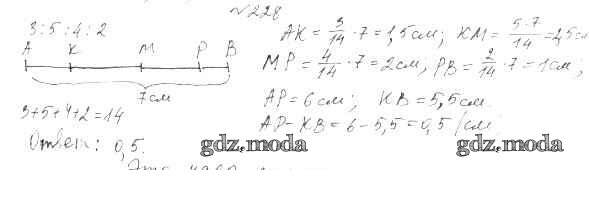 №228
3:5:4:2
A K M P B
7см
3+5+4+2=14
Ответ: 0,5.
AK = 3/14 · 7 = 1,5см; KM = 5·7/14 = 2,5см
MP = 4/14 · 7 = 2см; PB = 2/14 · 7 = 1см;
AP = 6см; KB = 5,5см.
AP - KB = 6 - 5,5 = 0,5 (см)
gdz.moda gdz.moda